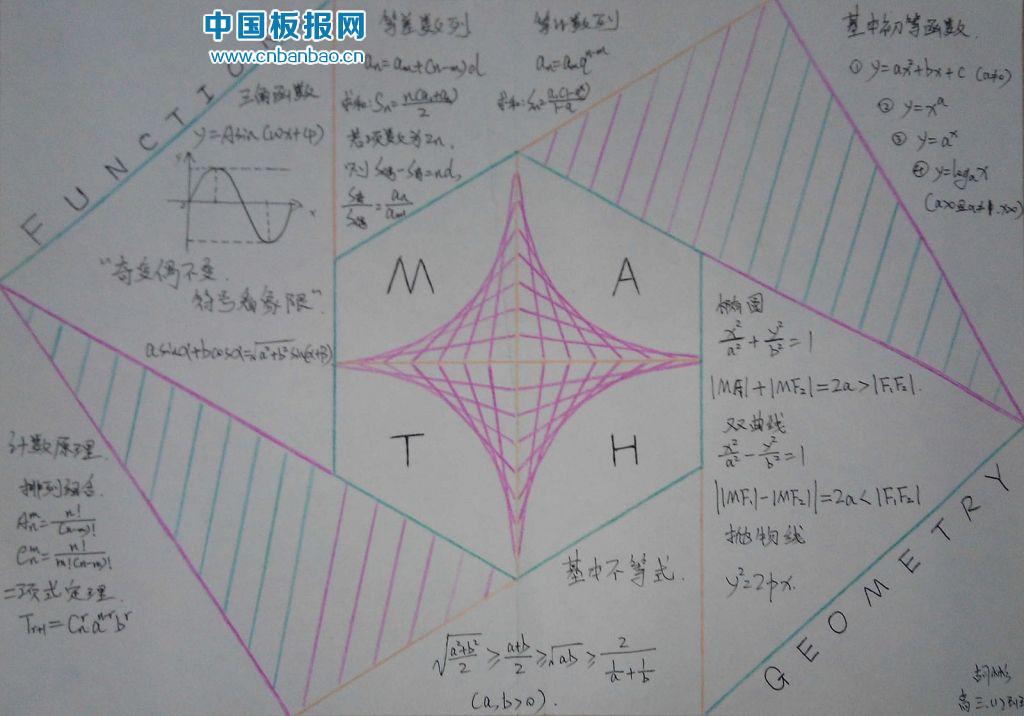 中国板报网
www.cnbanbao.cn
FUNCTION
三角函数
y=Asin(ωx+φ)
y
x
"奇变偶不变
符号看象限"
asinα+bcosα=√(a²+b²)sin(α+β)
等差数列
aₙ=aₘ+(n-m)d
求和:Sₙ=n(a₁+aₙ)/2
若项数为2n,
则S偶-S奇=nd,
S奇/S偶=aₙ/aₙ₊₁
等比数列
aₙ=aₘqⁿ⁻ᵐ
求和:Sₙ=a₁(1-qⁿ)/1-q
基本初等函数
① y=ax²+bx+c (a≠0)
② y=xᵃ
③ y=aˣ
④ y=logₐx
(a>0且a≠1,x>0)
M A
T H
椭圆
x²/a²+y²/b²=1
|MF₁|+|MF₂|=2a>|F₁F₂|.
双曲线
x²/a²-y²/b²=1
||MF₁|-|MF₂||=2a<|F₁F₂|
抛物线
y²=2px.
GEOMETRY
计数原理
排列组合
Aₙᵐ=n!/(n-m)!
Cₙᵐ=n!/m!(n-m)!
二项式定理
Tᵣ₊₁=Cₙʳaⁿ⁻ʳbʳ
基本不等式.
√((a²+b²)/2)≥(a+b)/2≥√ab≥2/(1/a+1/b)
(a,b>0).
高三.(1)